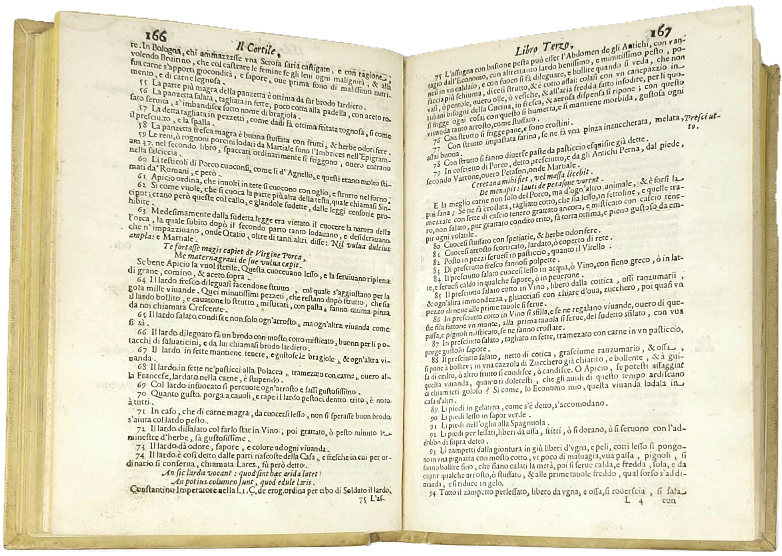 166
Il Cortile.
re. In Bologna, chi ammazzasse vna Scrofa saria castigato, e con ragione,
volendo Bruirino, che col castrare le femine se gli leui ogni malignità, & alla
sua carne s'apporti giocondità, e sapore, oue prima sono di malissimo nutri-
mento, e di carne legnosa.
55 La parte più magra della panzetta è ottima da far brodo lardiero.
56 La panzetta salata, tagliata in fette, poco cotta alla padella, con aceto ro-
sato seruita, s'imbandisce sotto nome di bragiola.
57 La detta tagliata in pezzetti, come dadi fà ottima fritata tognosa, si come
il presciutto, e la spalla.
58 La panzetta fresca magra è buona stuffata con frutti, & herbe odorifere.
59 Le reni, ò rognoni porcini lodati da Martiale sono l'Imbrices nell'Epigram-
am 37. nel secondo libro, spaccati ordinariamente si friggono, ouero entrano
nella salciccia.
60 I testicoli di Porco cuoconsi, come li d'Agnello, e questi erano molto sti-
mati da' Romani, e però.
61 Apicio ordina, che inuolti in rete si cuocono con oglio, e strutto nel forno.
62 Si come vuole, che si cuoca la parte più alta della testa, quale chiamasi Sin-
ciput; erano però queste col callo, e glandole sudette, dalle leggi censorie pro-
hibite.
63 Medesimamente dalla sudetta legge era vietato il cuocere la natura della
Porca, la quale subito dopo il secondo parto tanto lodauano, e desiderauano
che n' impazziuano, onde Oratio, oltre di tanti altri disse: Nil vulua dulcius
ampla: e Martiale.
Te fortasse magis capiet de Virgine Porca,
Me materna graui de sue vulua capit.
Se bene Apicio la vuol sterile. Questa cuoceuano lesso, e la seruiuano ripiena
di grane, comino, & aceto sopra.
64 Il lardo fresco dileguasi facendone strutto, col quale s'aggiustano per la
gola mille viuande. Quei minutissimi pezzetti, che restano dopo strutto, che sia
il lardo bollito, e cauatone lo strutto, misticati, con pasta, fanno ottima pinza,
da noi chiamata Crescente.
65 Il lardo salato condisce non solo ogn'arrosto, ma ogn'altra viuanda come
si sà.
66 Il lardo dileguato fà vn brodo con mosto cotto misticato, buoni per li po-
tacchi di saluaticini, e da lui chiamasi brodo lardiero.
67 Il lardo in fette mantiene tenere, e gustose le bragiole, & ogn'altra vi-
uanda.
68 Il lardo in fette ne' pasticci alla Polacca, tramezato con carne, ouero al-
la Francese, lardato nella carne, è stupendo.
69 Col lardo infuocato si percuote ogn'arrosto e fassi gustosissimo.
70 Quanto gusto, porga a cauoli, e rape il lardo pestoci dentro trito, è nota
à tutti.
71 In caso, che di carne magra, da cuocersi lesso, non si sperasse buon brodo
s'aiuta col lardo pesto.
72 Il lardo dissalato col farlo star in Vino, poi grattato, ò pesto minuto in
minestre d'herbe, fà gustosissime.
73 Il lardo dà odore, sapore, e colore ad ogni viuanda.
74 Il lardo è così detto dalle parti nascoste della Casa, e fisiche in cui per or-
dinario si conserua, chiamata Lares, fù però detto.
An sic larda vocant: quod sint hac arida lates?
An potius columen sunt, quod edule laris.
Constantine Imperatore nella l. 1. C. de erog. ordina per cibo di Soldato il lardo,
75 L'as-
Libro Terzo.
167
75 L'assogna con bastone pesta può esser l'Abdomen de gli Antichi, con van-
taggio dall'Economo, con altrettanto lardo benissimo, e minutissimo pesto, po-
nti in vn caldaio, e con fuoco si fà dileguare, e bollire quando si veda, che non
faccia più schiuma, dicesi strutto, & è cotto assai: colasi con vn canepazzo in
vasi, ò pentole, ouero olle, ò vesiche, & all'aria fredda fatto insodire, per li quo-
tidiani bisogni dalla Cucina, lo fresca, & aerosa dispensa si ripone; con questo
si frigge ogni cosa; con questo si humetta, e si mantiene morbida, gustosa ogni
viuanda tanto arrosto, come stuffato.
76 Con strutto si frigge pane, e sono crostini.
77 Con strutto impastata farina, se ne fà vna pinza inzuccherata, melata,
assai buona.
78 Con strutto si fanno diuerse paste da pasticcio esquisite già dette.
79 In coscretto di Porco, detto presciutto, e da gli Antichi Perna, dal piede,
secondo Varrone, ouero Petason, onde Martiale.
Presciut-
to.
Ceretana mihi fiet, vel massa licebit.
De menapis: lauti de petasone vorent.
E la meglio carne non solo del Porco, ma d'ogn'altro animale, & è forsi la
più sana; Se ne fà crollata, tagliato cotto, che sia lesso, in fettoline, e quelle tra-
mezzate con fette di cascio tenero grattato ancora, e misticato con cascio tene-
ro, non salato, pur grattato condito trito, fà torta ottima, e pieno gustoso da em-
pir ogni volatile.
80 Cuocesi stuffato con spetiarie, & herbe odorifere.
81 Cuocesi arrosto scorticato, lardato, ò coperto di rete.
82 Posto in pezzi serue si in pasticcio, quanto il Vitello.
83 Di presciutto fresco fannosi polpette.
84 Il presciutto salato cuocesi lesso in acqua, ò Vino, con fieno greco, ò in lat-
te, e seruesi caldo in qualche sapore, ò in peuerone.
85 Il presciutto salato cotto in Vino, libero dalla cottica, ossi ranzumarii,
& ogn'altra immondezza, pillottasi con chiare d'oua, zucchero, poi quasi vn
pezzo di neue alle prime tauole si serue.
86 In presciutto cotto in Vino si sfila, e se ne regalano viuande, ouero di que-
ste fila fattone vn monte, alla prima tauola si serue, del sudetto sfilato, con vua
passa, e pignoli misticato, se ne fanno crostate.
87 In presciutto salato, tagliato in fette, tramezato con carne in vn pasticcio,
porge gustosò sapore.
88 Il presciutto salato, netto di cotica, grasciume ranzumario, & ossa,
si pone à bollire; in vna cazzola di Zucchero già chiarito, e bollente, & à gui-
sa di cedro, ò altro frutto si condisce, ò candisce. O Apicio, se potesti assaggiar
questa viuanda, quanto ti dolereti, che gli auidi di questo tempo ardiscano
chiamarti goloso? Si come, lo Economo mio, questa viuanda lodalà in
casa d'altri.
89 Li piedi in gelatina, come s'è detto, s'accomodano.
90 Li piedi lesso in sapor verde.
91 Li piedi nell'oglia alla Spagnuola.
92 Li piedi perlessati, liberi da ossa, fritti, ò si dorano, ò si seruono con l'ad-
dobbo di sapra detto.
93 Li zampetti dalla giontura in giù liberi d'vgna, e peli, cotti lesso si pongo-
no in vna pignatta con mosto cotto, vt poco di maluagia, vua passa, pignoli, si
fanno bollire sino, che siano calati la metà, poi si serue calda, e fredda, sola, e da
coprir qualche arrosto, ò stuffato, & alle prime tauole freddo, qual sorso s'ad di-
manda, e si riduce in gelo.
94 Tutto il zampetto perlessato, libero da vgna, e ossa, si rouerscia, si sala
L 4 con